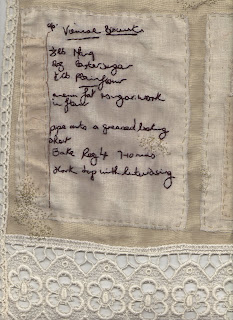 Viennese Biscuits
½lb Marg
2oz Castersugar
½lb Plainflour
cream fat & sugar. work
in flour
pipe onto a greased baking
sheet
Bake Reg 4 7-10 mins
with butter icing